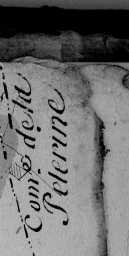 Comis de la
Peterine